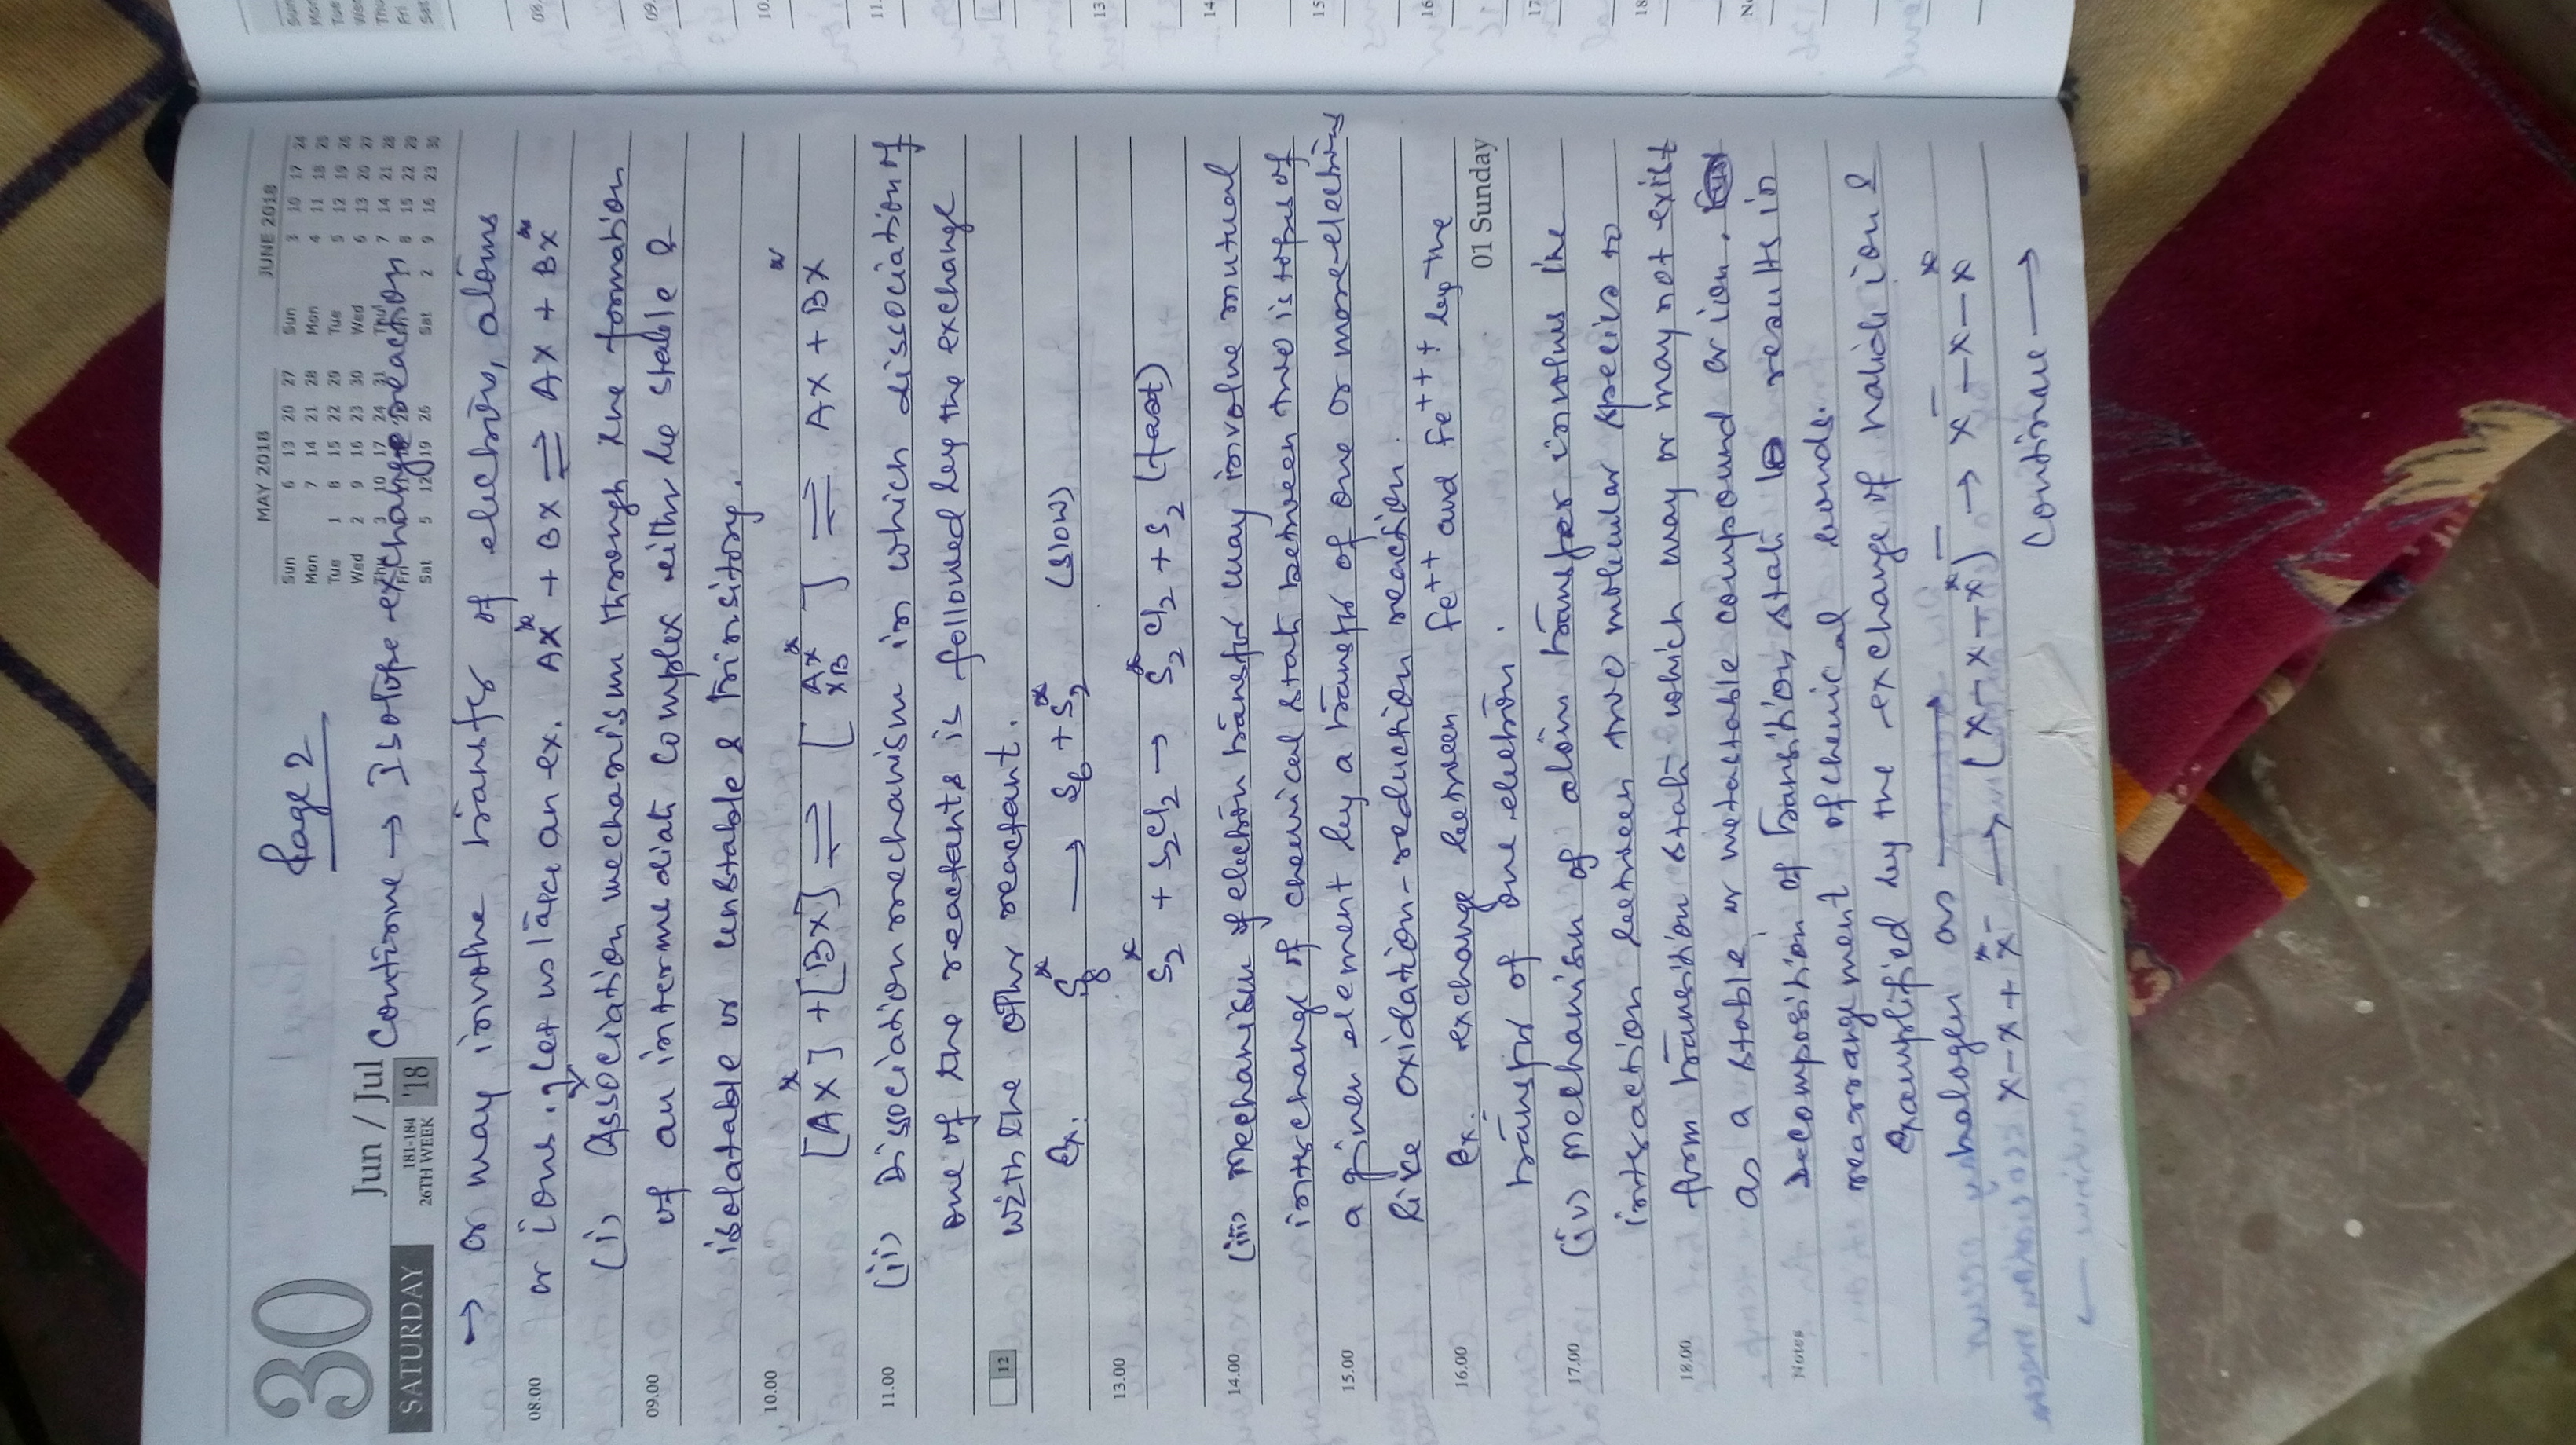 Page 2
30
SATURDAY
Jun / Jul
181-184
26TH WEEK
'18
MAY 2018
Sun 6 13 20 27
Mon 7 14 21 28
Tue 1 8 15 22 29
Wed 2 9 16 23 30
Thu 3 10 17 24 31
Fri
Sat 5 12 19 26
JUNE 2018
Sun 3 10 17 24
Mon 4 11 18 25
Tue 5 12 19 26
Wed 6 13 20 27
Thu 7 14 21 28
Fri 1 8 15 22 29
Sat 2 9 16 23 30
Continue → Isotope-exchange reaction
→ or may involve transfer of electrons, atoms
08.00 or ions. let us take an ex. AX* + BX ⇌ AX + BX*
(i) Association mechanism through the formation
09.00 of an intermediate complex either be stable &
isolatable or unstable & transitory.
10.00
[AX*] + [BX] ⇌ [AX* XB] ⇌ AX + BX*
11.00 (ii) Dissociation mechanism in which dissociation of
one of the reactants is followed by the exchange
12 with the other reactant.
Ex. S8* → S6 + S2* (slow)
13.00
S2* + S2Cl2 → S2*Cl2 + S2 (fast)
14.00 (iii) Mechanism of electron transfer may involve mutual
interchange of chemical state between two isotopes of
15.00 a given element by a transfer of one or more electrons
like oxidation-reduction reaction.
16.00 Ex. exchange between Fe++ and Fe+++ by the
01 Sunday
transfer of one electron.
17.00 (iv) Mechanism of atom transfer involves the
interaction between two molecular species to
18.00 form transition state which may or may not exist
as a stable or metastable compound or ion.
Notes Decomposition of transition state results in
rearrangement of chemical bonds.
Exemplified by the exchange of halide ion &
halogen as
X-X + X*- → (X-X-X*)- → X- - X - X*
Continue →